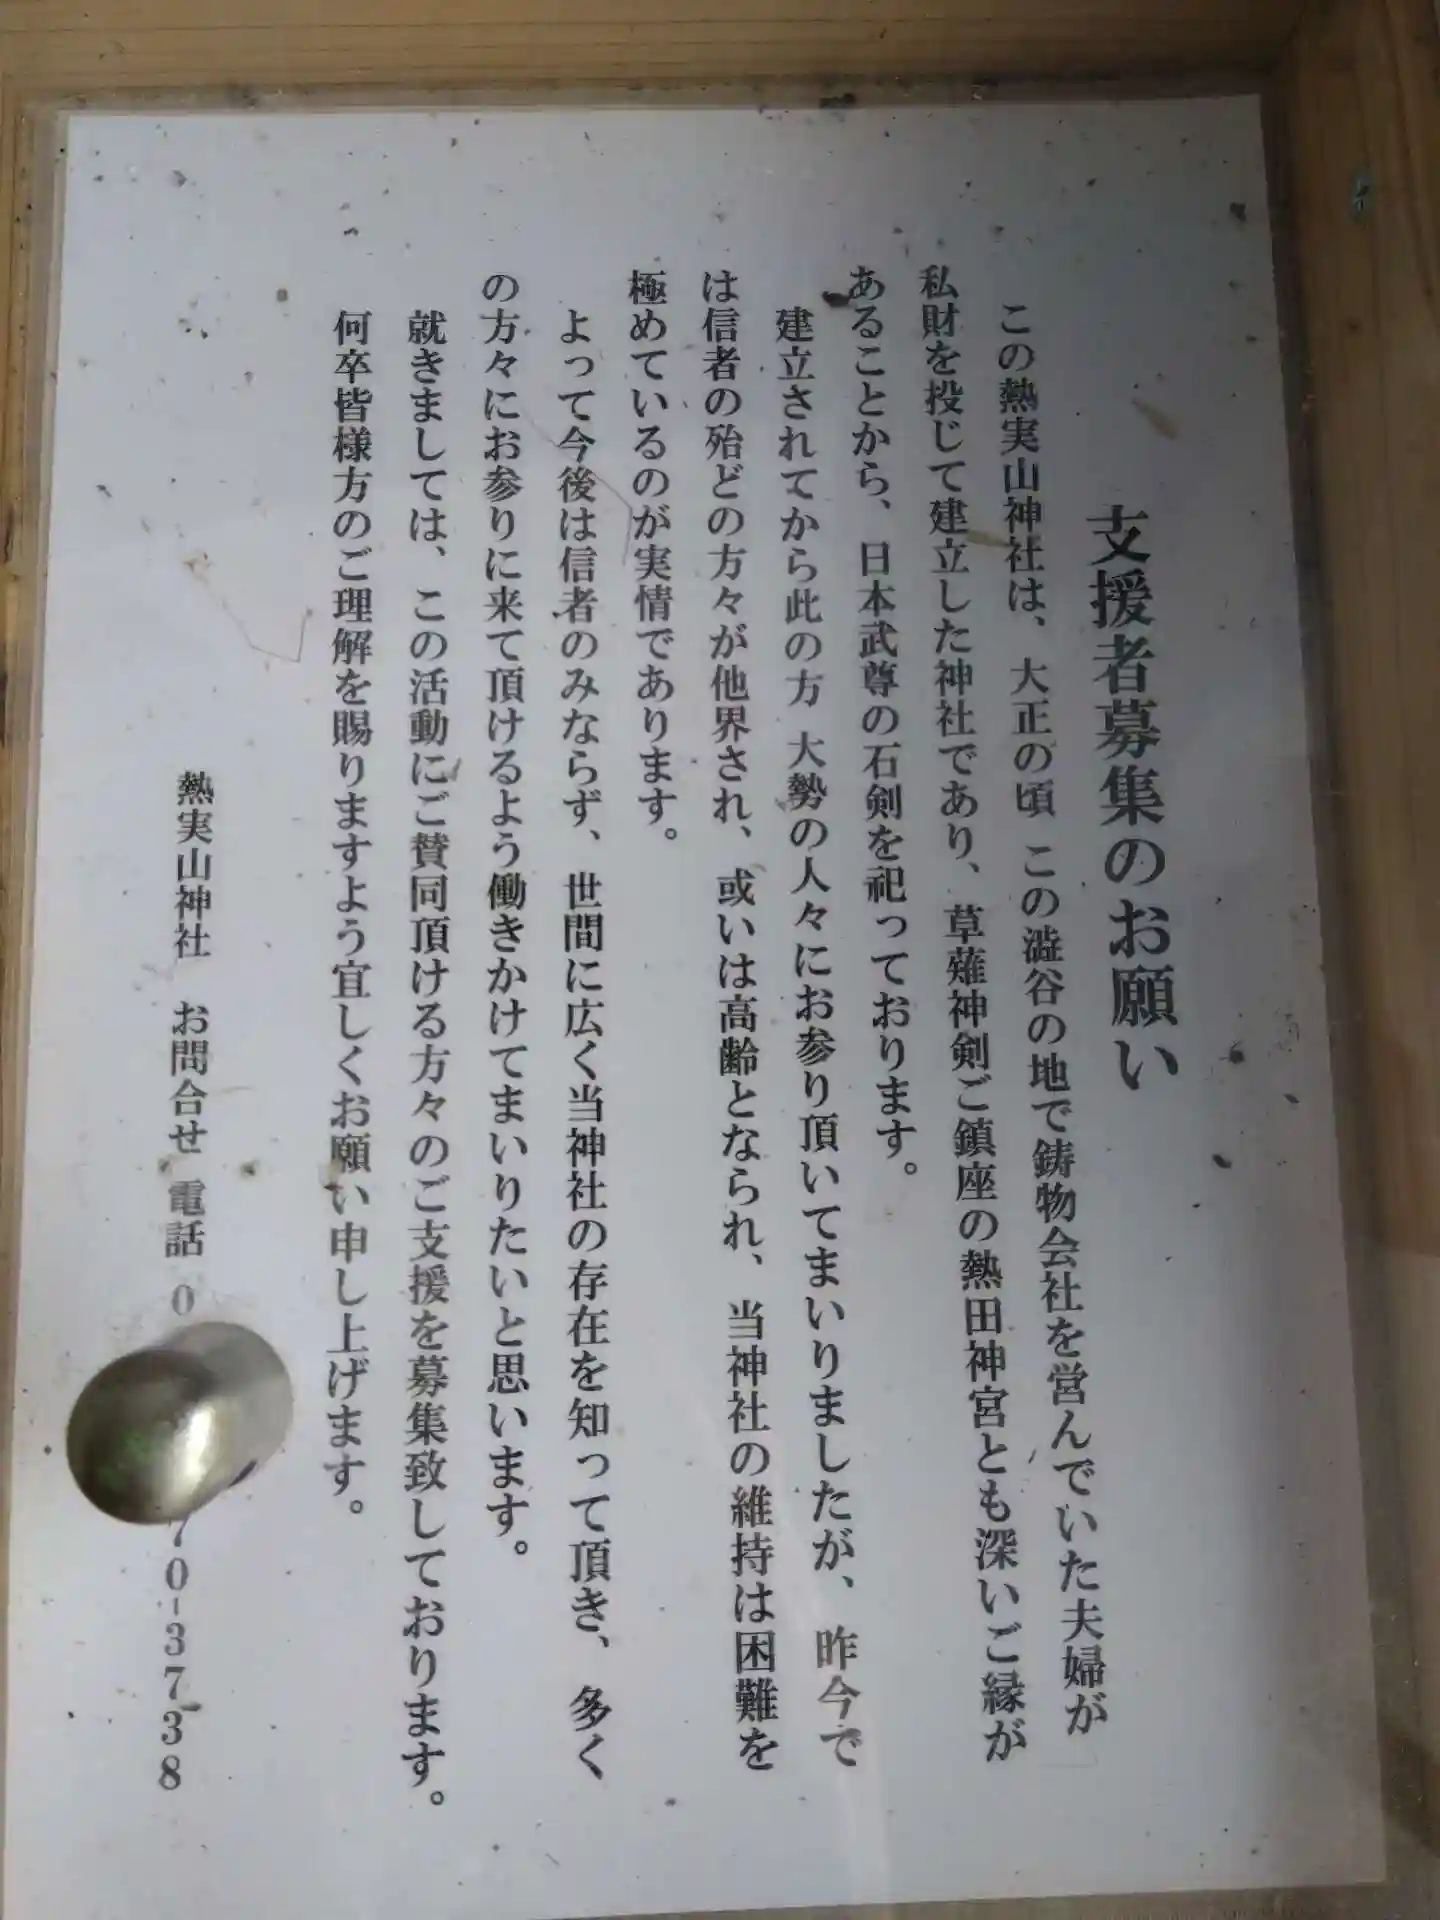 支援者募集のお願い
この熱実山神社は、大正の頃 この澁谷の地で鋳物会社を営んでいた夫婦が
私財を投じて建立した神社であり、草薙神剣ご鎮座の熱田神宮とも深いご縁が
あることから、日本武尊の石剣を祀っております。
建立されてから此の方 大勢の人々にお参り頂いてまいりましたが、昨今で
は信者の殆どの方々が他界され、或いは高齢となられ、当神社の維持は困難を
極めているのが実情であります。
よって今後は信者のみならず、世間に広く当神社の存在を知って頂き、多く
の方々にお参りに来て頂けるよう働きかけてまいりたいと思います。
就きましては、この活動にご賛同頂ける方々のご支援を募集致しております。
何卒皆様方のご理解を賜りますよう宜しくお願い申し上げます。
熱実山神社 お問合せ 電話 0 70-3738